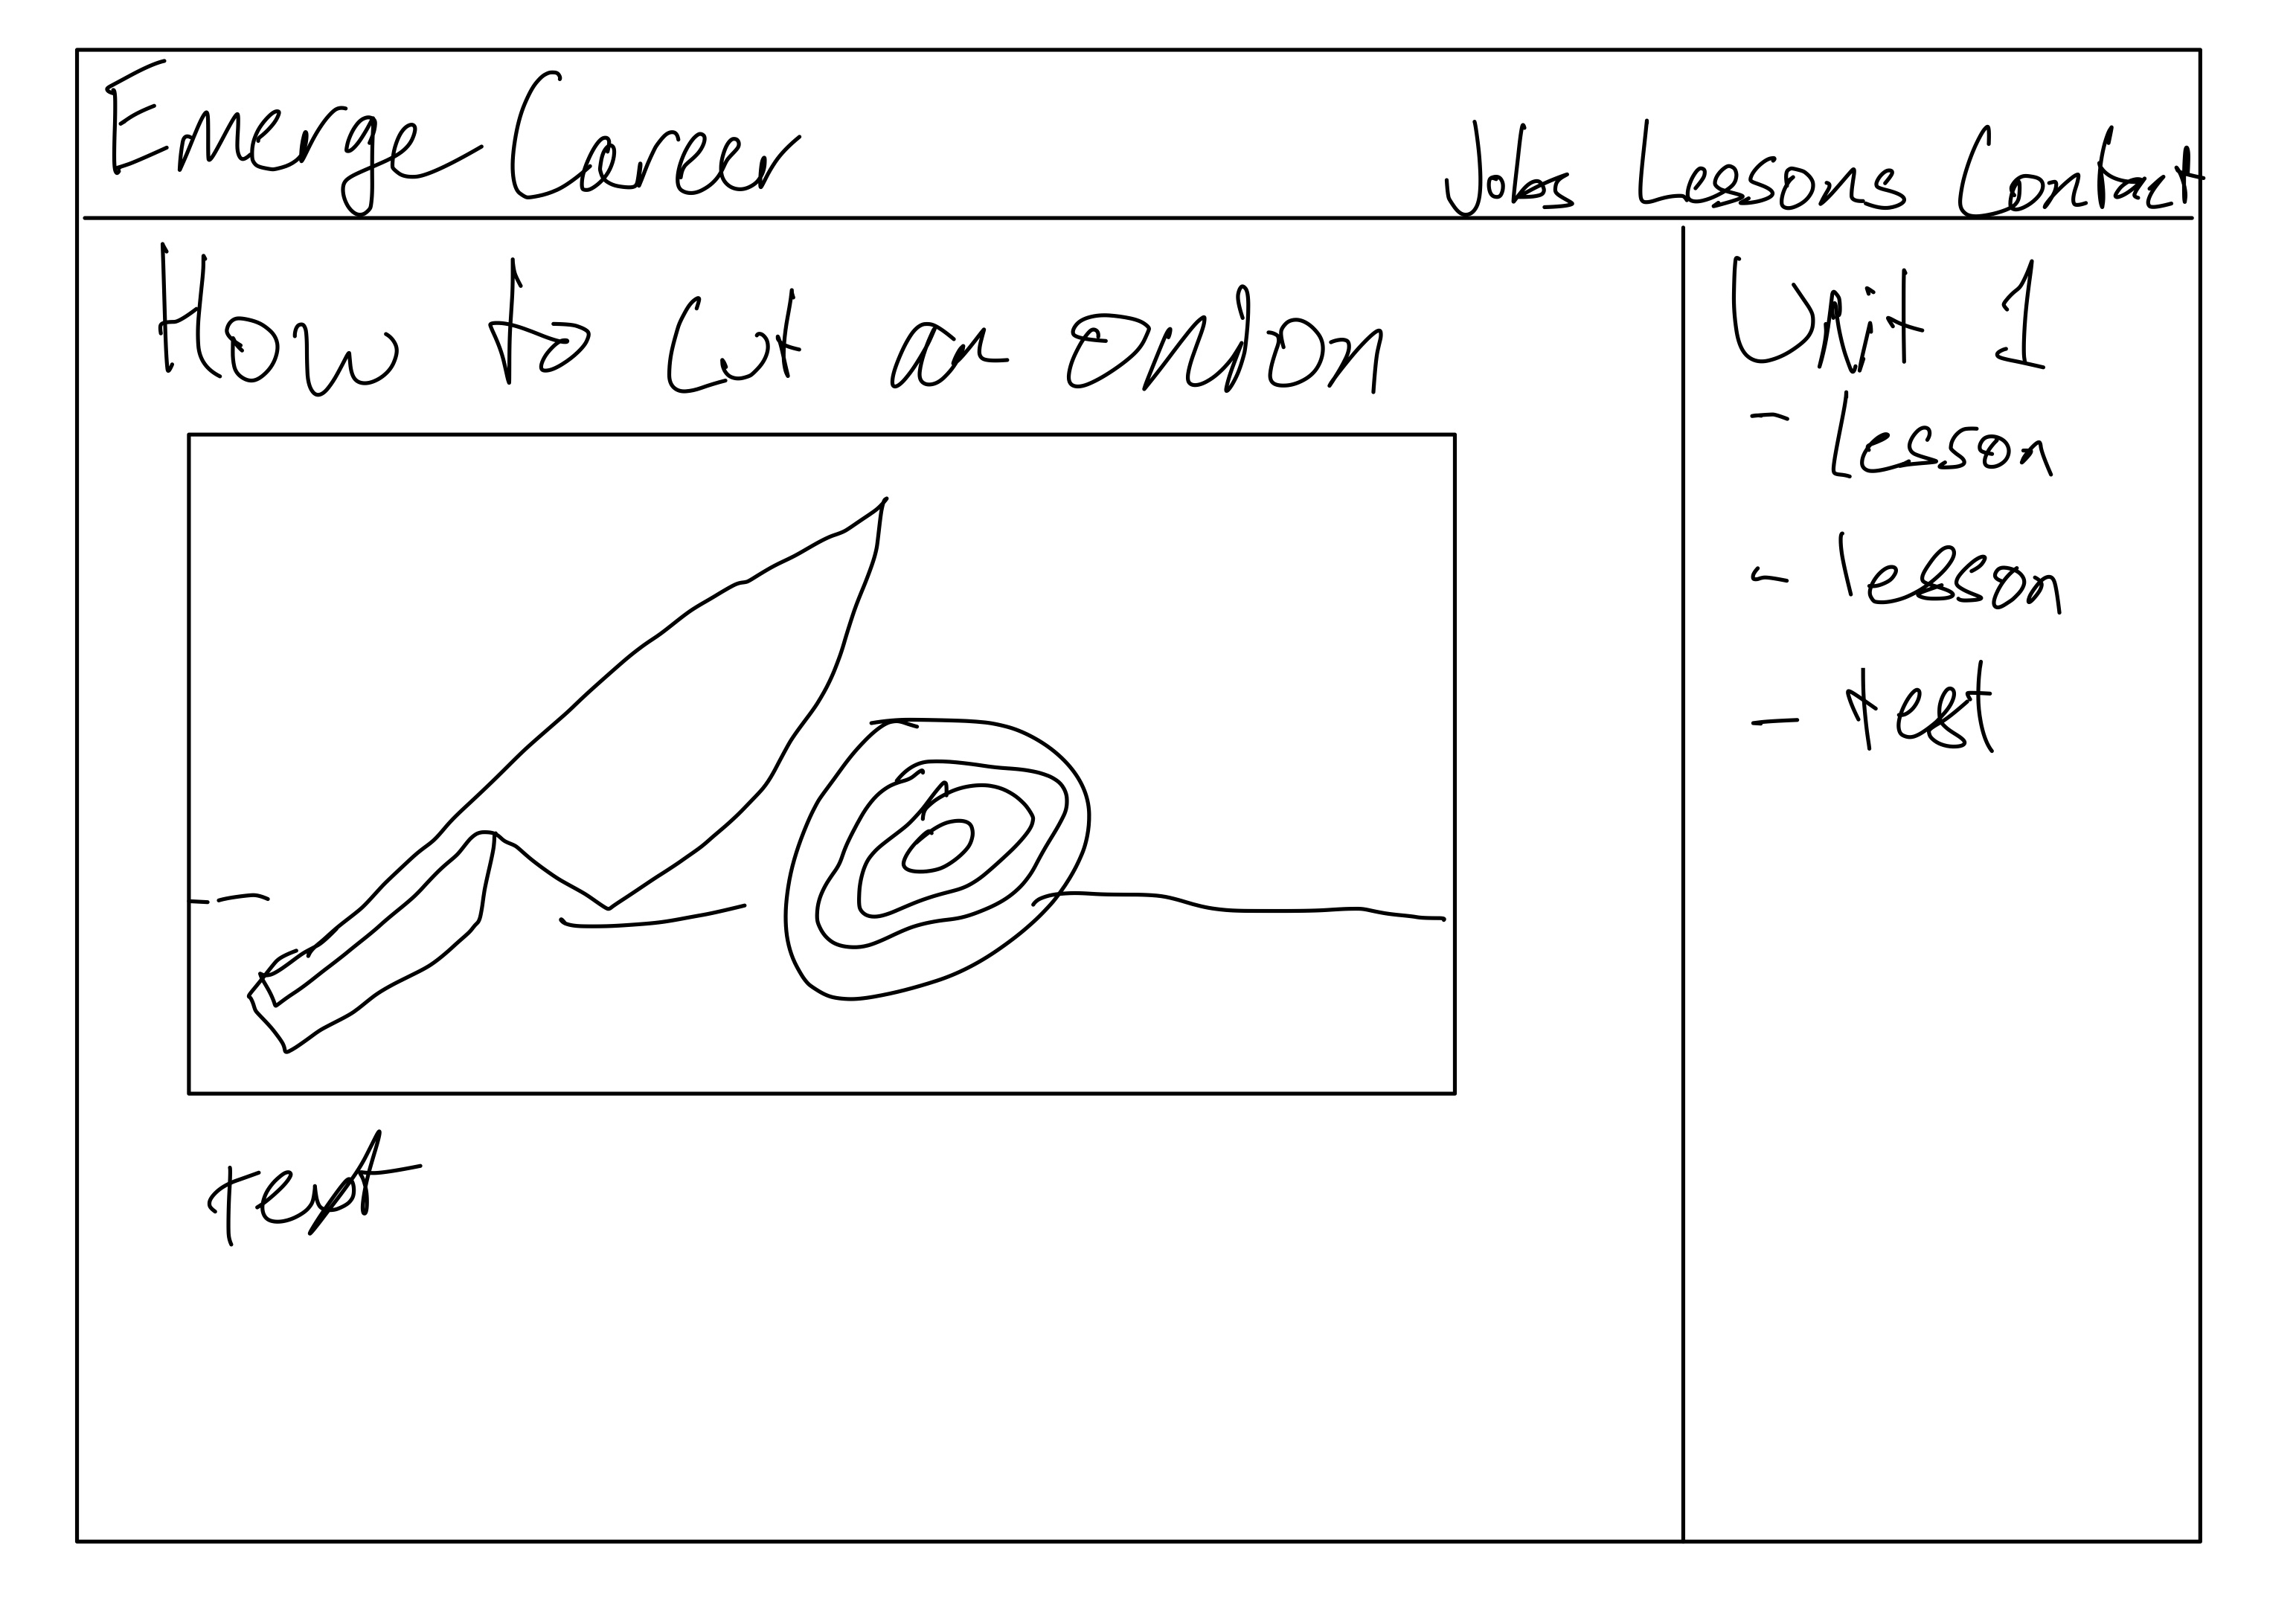 Emerge Career
Jobs Lessons Contact
How to cut an onion
Unit 1
- Lesson
- lesson
- test
text